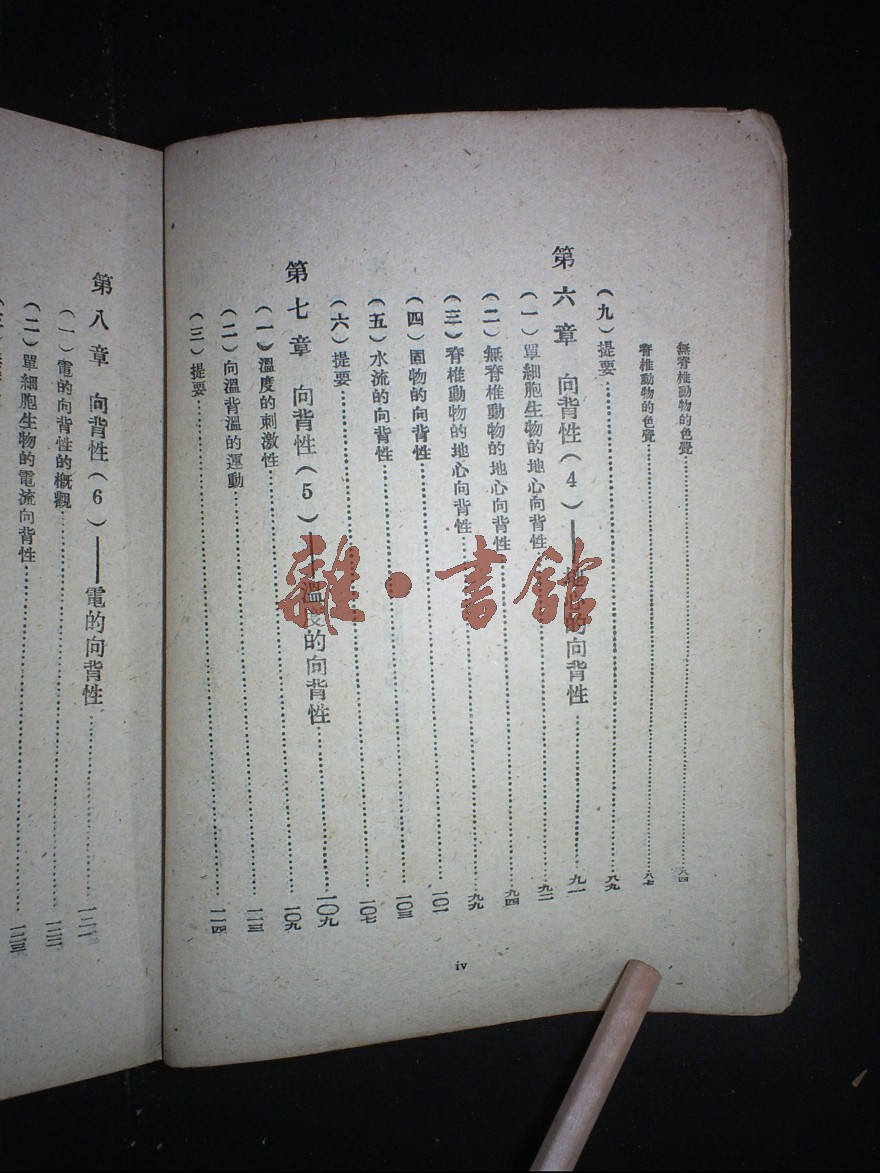 無脊椎動物的色覺……八四
脊椎動物的色覺……八七
（九）提要……八九
第六章 向背性（4）——地心的向背性……九一
（一）單細胞生物的地心向背性……九二
（二）無脊椎動物的地心向背性……九四
（三）脊椎動物的地心向背性……九九
（四）固物的向背性……一〇一
（五）水流的向背性……一〇三
（六）提要……一〇七
第七章 向背性（5）——溫度的向背性……一〇九
（一）溫度的刺激性……一〇九
（二）向溫背溫的運動……一一三
（三）提要……一一四
iv
第八章 向背性（6）——電的向背性……一二一
（一）電的向背性的概觀
（二）單細胞生物的電流向背性……一二三
雜·書館